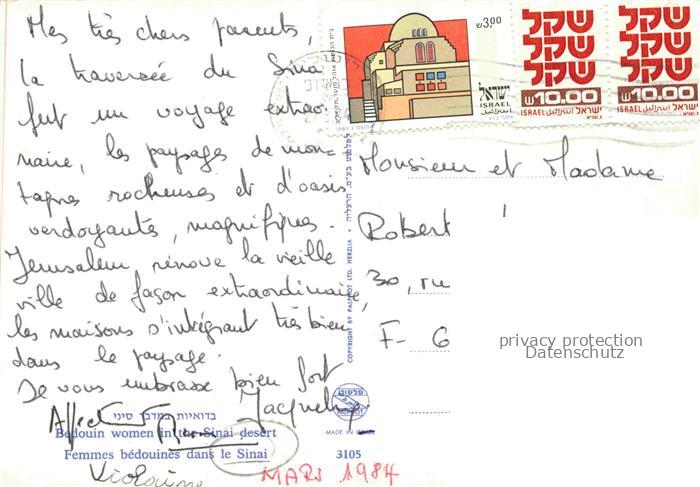 Mes très chers parents,
la traversée du Sina
fut un voyage extraor-
dinaire, les paysages de mon-
tagnes rocheuses et d'oasis
verdoyantes, magnifiques.
Jerusalem, rénove la vieille
ville de façon extraordinaire,
les maisons s'intégrant très bien
dans le paysage.
Je vous embrasse bien fort
Jacqueline
בדואיות במדבר סיני
Bedouin women in the Sinai desert
Femmes bédouines dans le Sinai
3105
Violaine
MARS 1984
COPYRIGHT BY PALPHOT LTD. HERZLIA
פלפוט
PALPHOT
MADE IN ISRAEL
₪3.00
ישראל
ISRAEL
שקל
שקל
שקל
₪10.00
ISRAEL ישראל
שקל
שקל
שקל
₪10.00
ISRAEL ישראל
Monsieur et Madame
Robert
30, ru
F- 6
privacy protection
Datenschutz